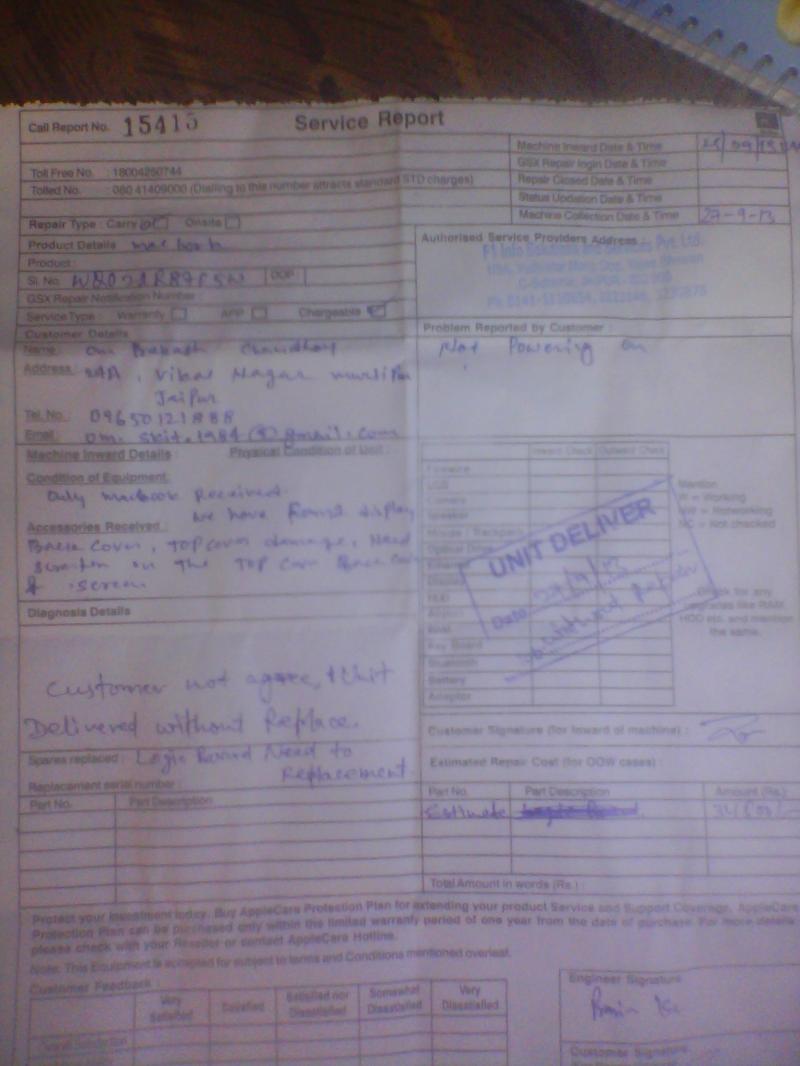 Call Report No. 15415
Service Report
Toll Free No. : 18004250744
Tolled No. : 080 41409000 (Dialling to this number attracts standard STD charges)
Machine Inward Date & Time
GSX Repair login Date & Time
Repair Closed Date & Time
Status Updation Date & Time
Machine Collection Date & Time 27-9-13
Repair Type : Carry in Onsite
Product Details macbook
Product :
Sl. No. DOP
GSX Repair Notification Number :
Service Type : Warranty APP Chargeable
Authorised Service Providers Address :
F1 Info Solutions and Services Pvt. Ltd.
C-Scheme, JAIPUR
Customer Details
Name: Om Prakash Choudhary
Address : 24A, Vikas Nagar murlipura
Jaipur
Tel. No. 09650121888
Email: om.skit.1984@gmail.com
Problem Reported by Customer :
Not Powering on
Machine Inward Details : Physical Condition of Unit :
Condition of Equipment:
Only macbook Received.
we have found display
Accessories Received :
Back Cover, Top cover damage,
on the Top Cover
& screen
Inward Check Outward Check
Firewire
USB
Camera
Speaker
Mouse / Trackpad
Optical Drive
Display
HDD
Airport
RAM
Key Board
Bluetooth
Battery
Adaptor
Mention
W = Working
NW = Notworking
NC = Not checked
Check for any
upgrades like RAM,
HDD etc. and mention
the same.
UNIT DELIVER
Date
without Repair
Diagnosis Details
Customer not agree, Unit
Delivered without Replace.
Spares replaced : Logic Board Need to
Replacement.
Replacement serial number :
Part No. Part Description
Customer Signature (for Inward of machine) :
Estimated Repair Cost (for OOW cases) :
Part No. Part Description Amount (Rs.)
Estimate
Total Amount in words (Rs.)
Protect your investment today. Buy AppleCare Protection Plan for extending your product Service and Support Coverage, AppleCare
Protection Plan can be purchased only within the limited warranty period of one year from the date of purchase. For more details
please check with your Reseller or contact AppleCare Hotline.
Note: This Equipment is accepted for subject to terms and Conditions mentioned overleaf.
Customer Feedback :
Very Satisfied Satisfied Satisfied nor Dissatisfied Somewhat Dissatisfied Very Dissatisfied
Overall Satisfaction
Engineer Signature
Customer Signature